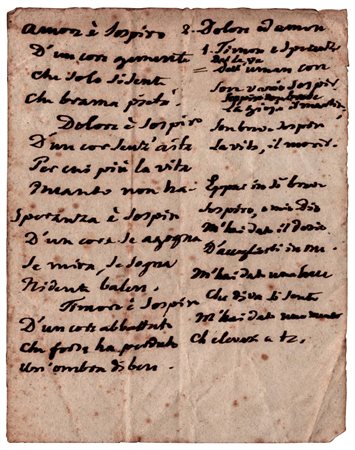 Amor è sospiro
D'un cor gemente
Che solo si sente
Che brama pietà.
Dolor è sospiro
D'un cor senz'aita
Per cui più la vita
Incanto non ha.
Speranza è sospiro
D'un core se agogna
Se mira, se sogna
Ridente balen.
Timor è sospiro
D'un cor abbattuto
Che forse ha perduto
Un'ombra di ben.
2. Dolor ed amor
1. Timor e speranza
Dell'uman cor
Son vario sospir
Son breve sospir
La vita, il morir.
Eppur in sì breve
Sospiro, o mio Dio
M'hai dato il desio
D'acquetarti in me.
M'hai dato una luce
Che diva si sente
M'hai dato una mente
Ch'eleva a te.